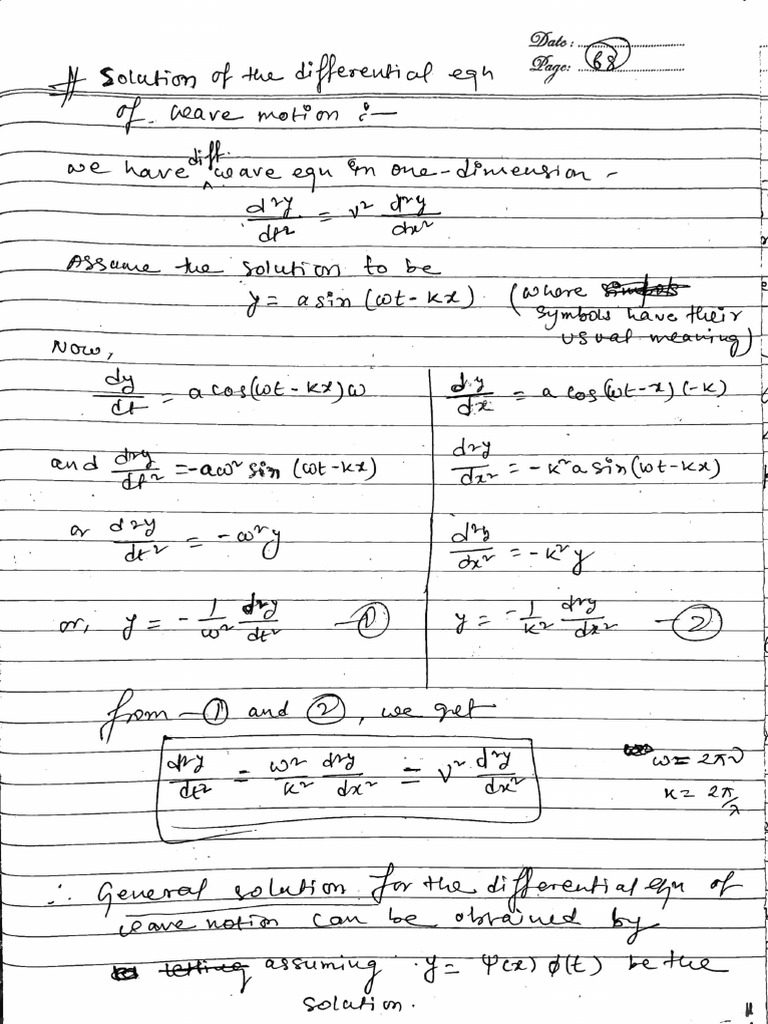 Date:
Page: 68
# Solution of the differential eqn
of wave motion :-
we have diff. wave eqn in one-dimension -
d²y/dt² = v² d²y/dx²
Assume the solution to be
y = a sin (ωt - kx) (where
symbols have their
usual meaning)
Now,
dy/dt = a cos(ωt - kx) ω
dy/dx = a cos (ωt - x) (-k)
and d²y/dt² = -aω² sin (ωt - kx)
d²y/dx² = -k² a sin (ωt - kx)
or d²y/dt² = -ω²y
d²y/dx² = -k²y
or, y = -1/ω² d²y/dt² —①
y = -1/k² d²y/dx² —②
from -① and ②, we get
d²y/dt² = ω²/k² d²y/dx² = v² d²y/dx²
ω = 2πν
k = 2π/λ
∴ General solution for the differential eqn of
wave motion can be obtained by
letting assuming y = Ψ(x) ϕ(t) be the
solution.